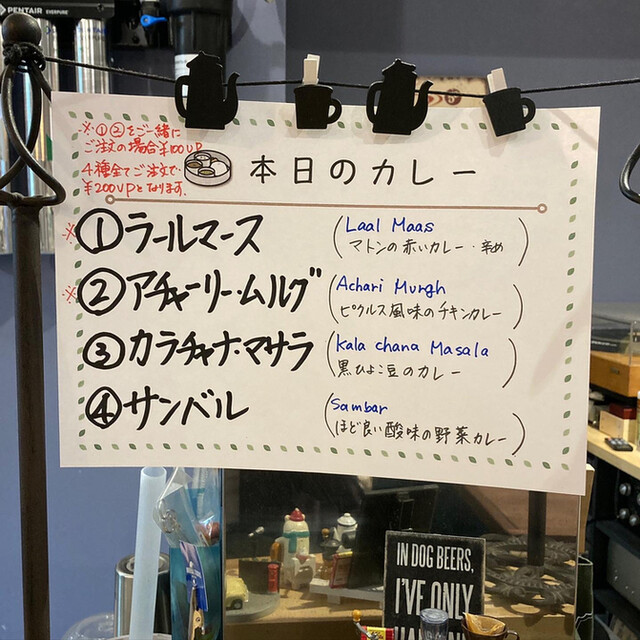 PENTAIR EVERPURE
※①②をご一緒に
ご注文の場合¥100UP
4種全てご注文で
¥200UPとなります。
本日のカレー
※①ラールマース
(Laal Maas
マトンの赤いカレー・辛め)
※②アチャーリー・ムルグ
(Achari Murgh
ピクルス風味のチキンカレー)
③カラチャナ・マサラ
(Kala chana Masala
黒ひよこ豆のカレー)
④サンバル
(Sambar
ほど良い酸味の野菜カレー)
IN DOG BEERS,
I'VE ONLY